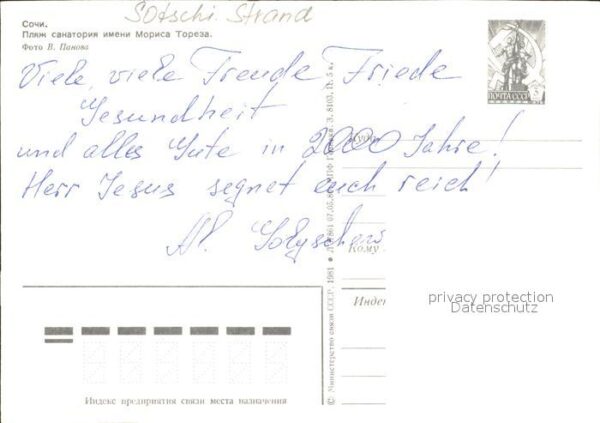 Sotschi. Strand
Сочи.
Пляж санатория имени Мориса Тореза.
Фото В. Панова
ПОЧТА СССР
Viele, viele Freude Friede
Gesundheit
und alles Gute in 2000 Jahre!
Herr Jesus segnet euch reich!
Куда
Кому
Индек
privacy protection
Datenschutz
© Министерство связи СССР. 1981
Индекс предприятия связи места назначения